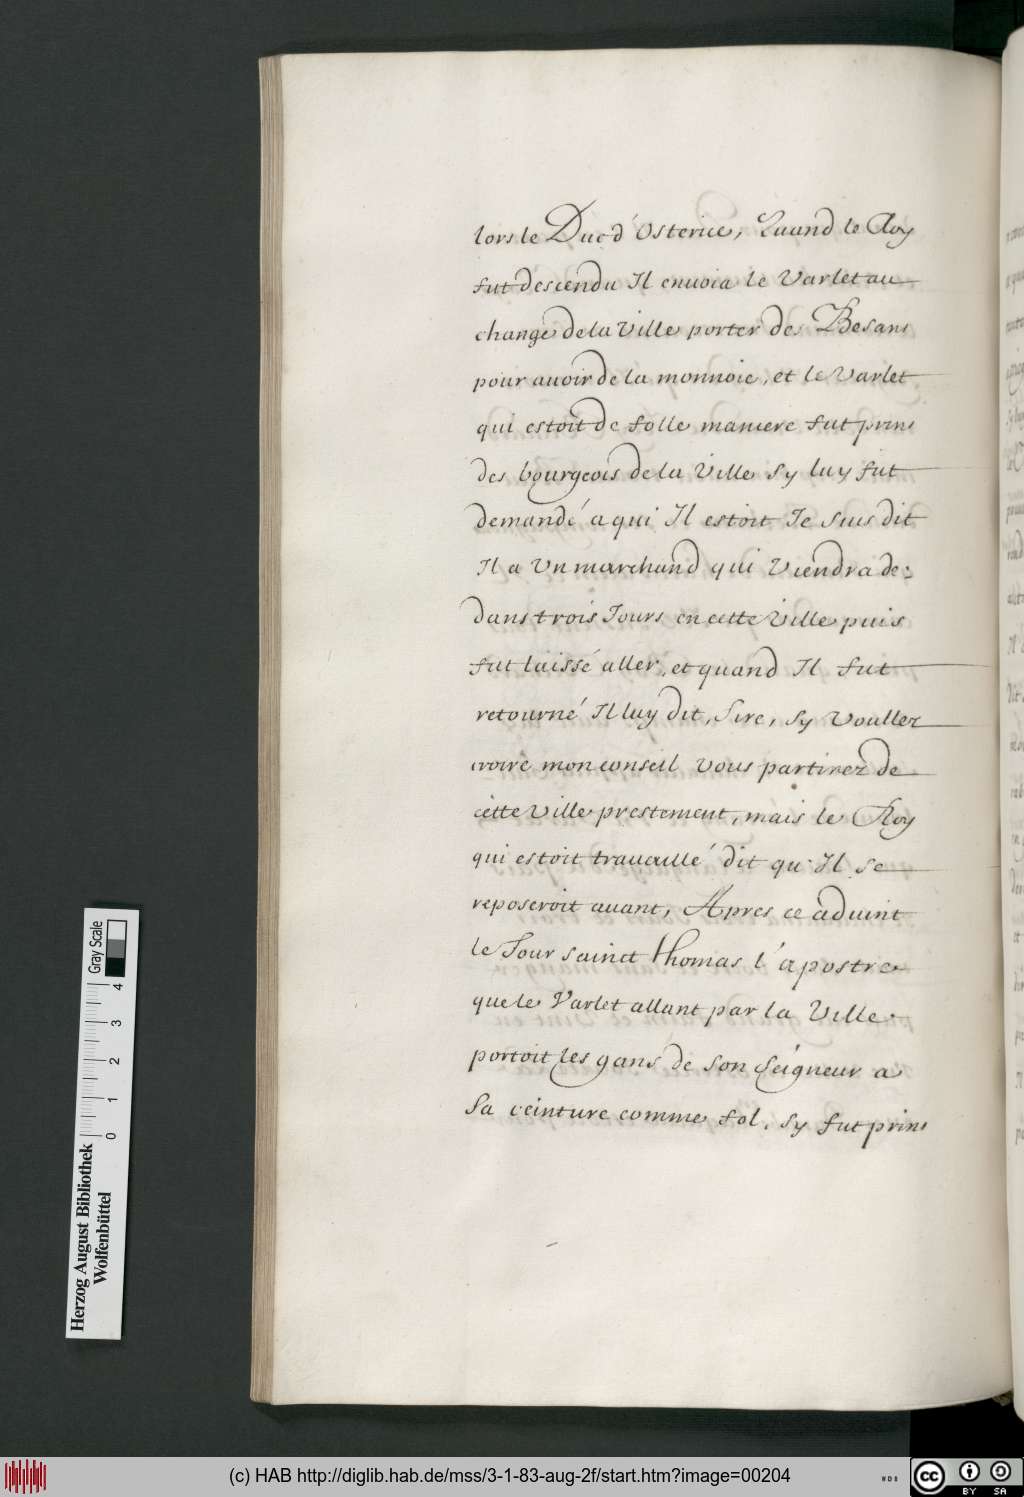 lors le Duc d'Osterice, Quand le Roy
fut descendu Il enuoia le Varlet au
change de la Ville porter des Besans
pour auoir de la monnoie, et le Varlet
qui estoit de folle maniere fut prins
des bourgeois de la Ville sy luy fut
demandé a qui Il estoit Je suis dit
Il a Un marchand qui Viendra de:
dans trois Jours en cette Ville puis
fut laissé aller, et quand Il fut
retourné Il luy dit, Sire, sy Voullez
croire mon conseil Vous partirez de
cette Ville prestement, mais le Roy
qui estoit trauaillé dit qu'Il se
reposeroit auant, Apres ce aduint
le Jour sainct thomas l'apostre
que le Varlet allant par la Ville
portoit les gans de son seigneur a
sa ceinture comme fol, sy fut prins
Herzog August Bibliothek
Wolfenbüttel
0 1 2 3 4
Gray Scale
(c) HAB http://diglib.hab.de/mss/3-1-83-aug-2f/start.htm?image=00204
WDB
cc BY SA